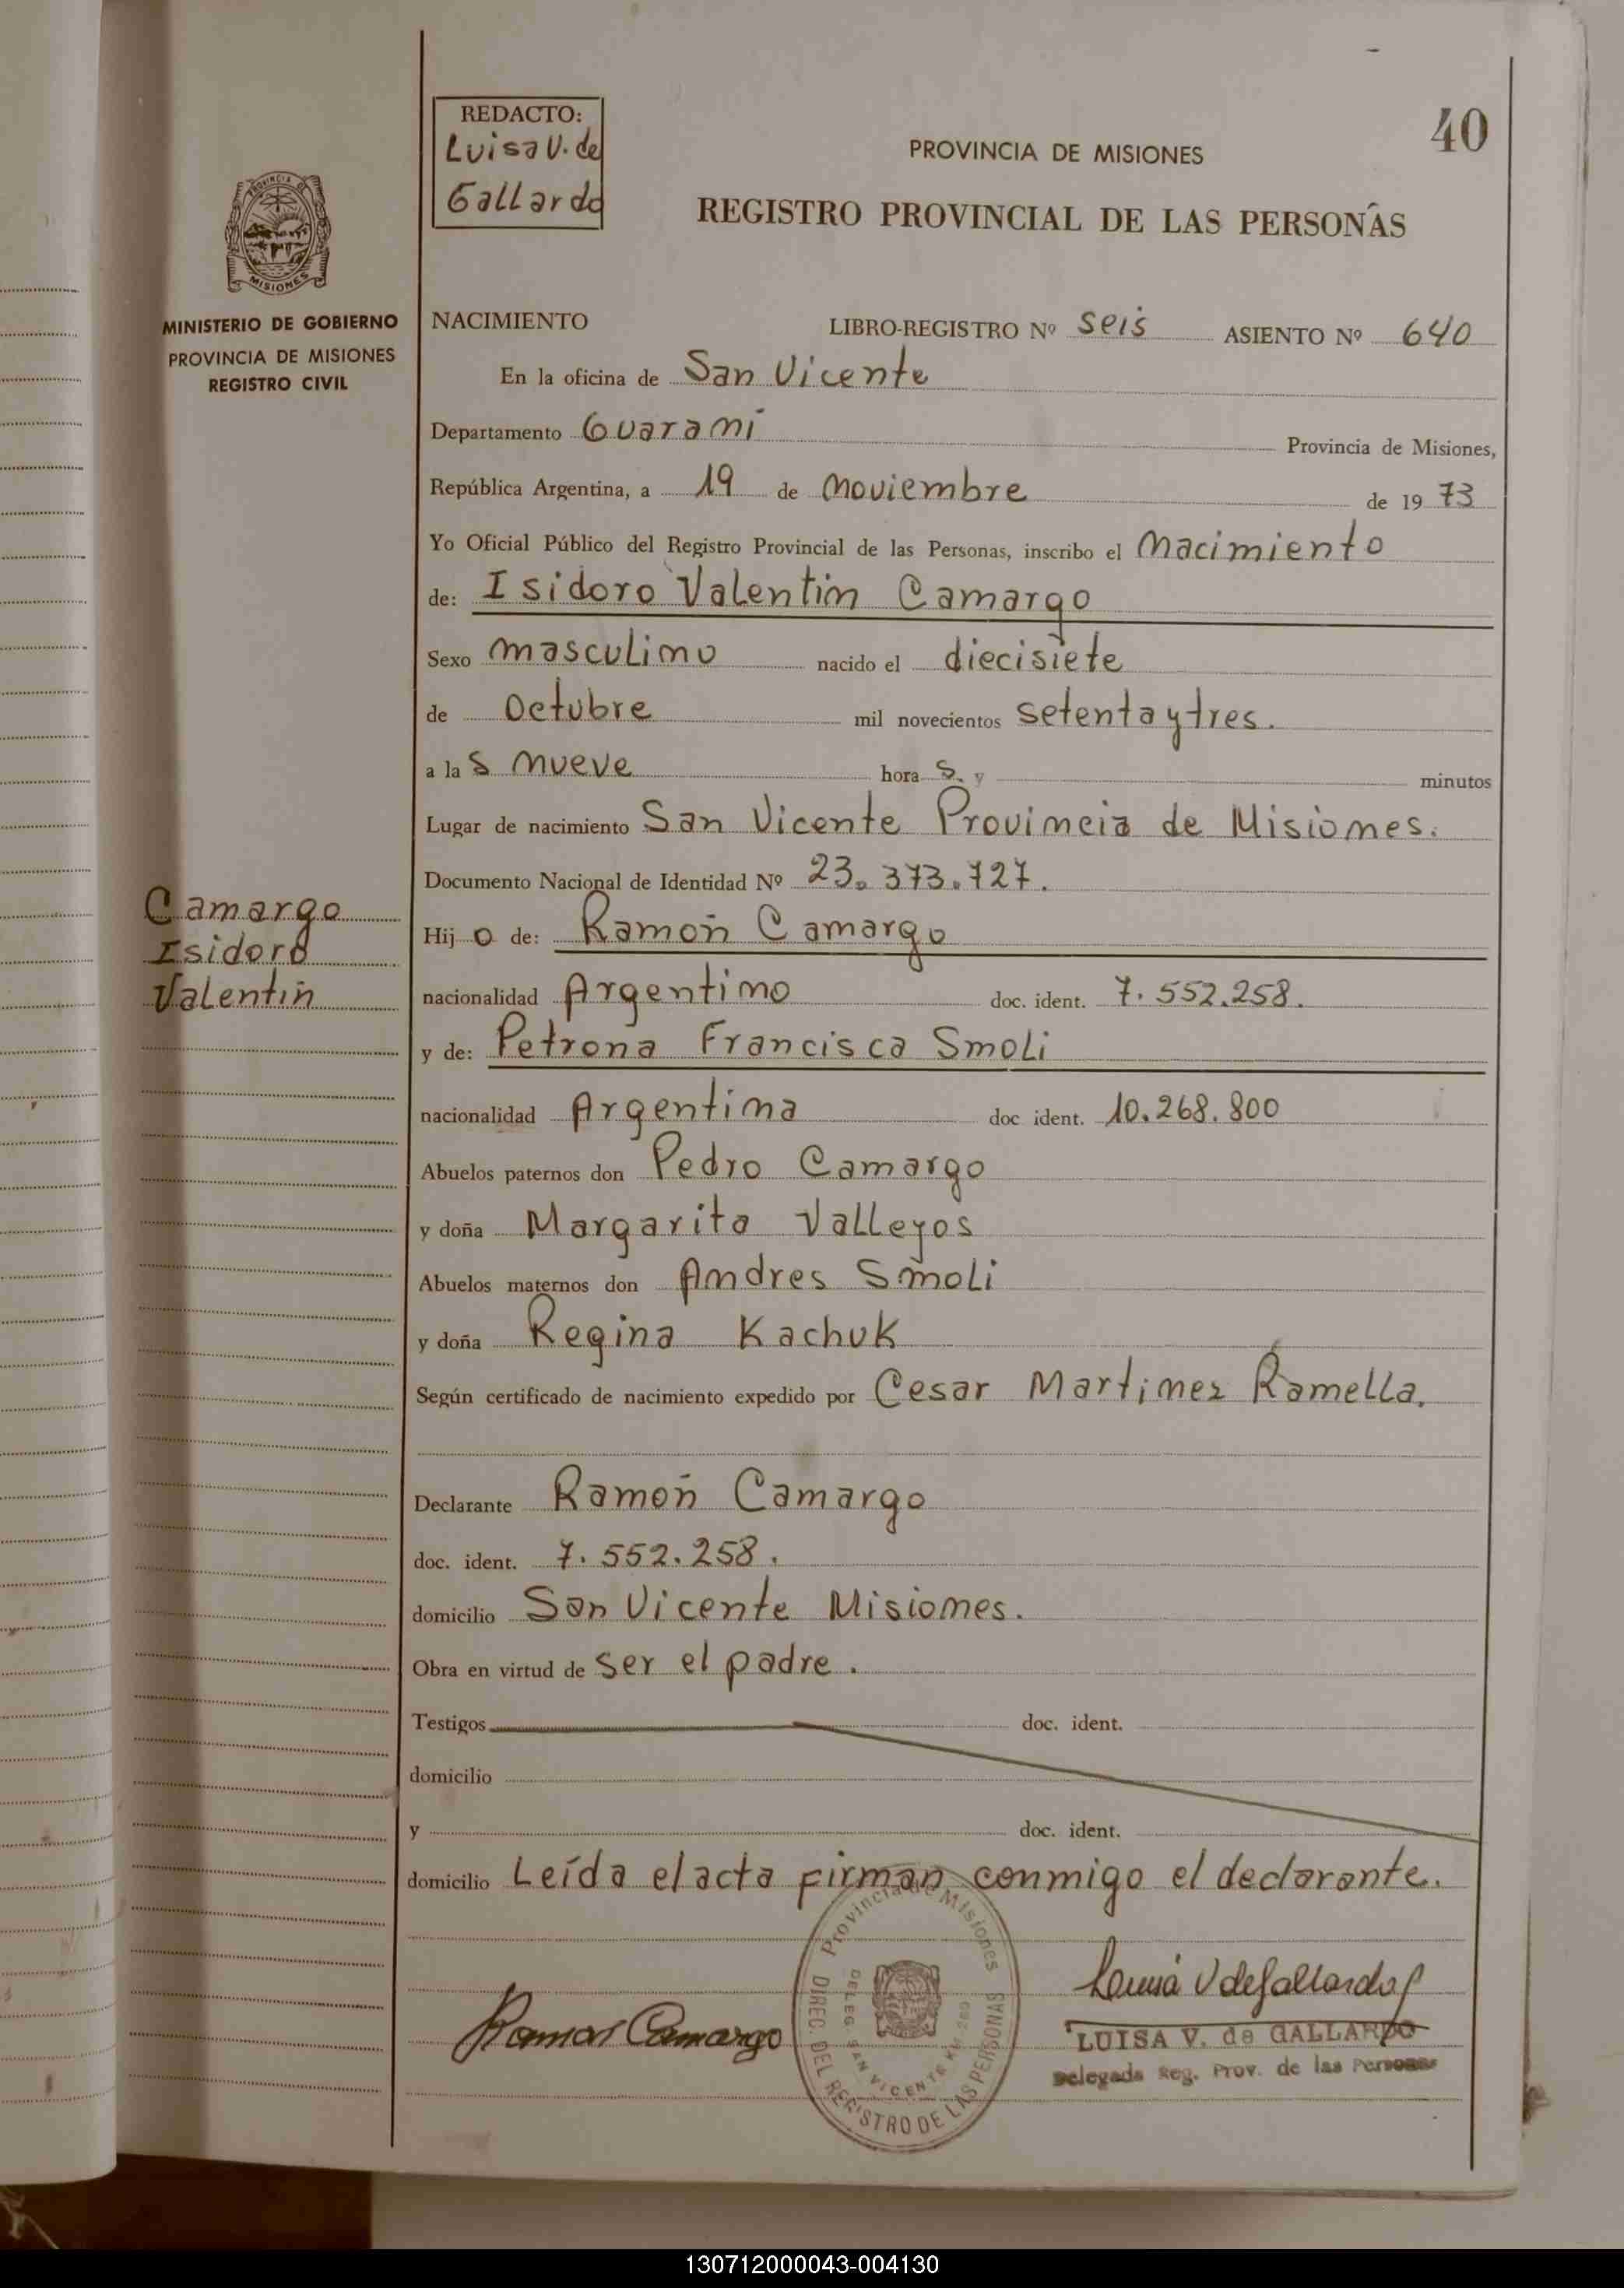 40
REDACTO:
Luisa V. de
Gallardo
PROVINCIA DE MISIONES
REGISTRO PROVINCIAL DE LAS PERSONAS
PROVINCIA DE
MISIONES
MINISTERIO DE GOBIERNO
PROVINCIA DE MISIONES
REGISTRO CIVIL
NACIMIENTO LIBRO-REGISTRO Nº Seis ASIENTO Nº 640
En la oficina de San Vicente
Departamento Guaraní Provincia de Misiones,
República Argentina, a 19 de noviembre de 1973
Yo Oficial Público del Registro Provincial de las Personas, inscribo el nacimiento
de: Isidoro Valentín Camargo
Sexo masculino nacido el diecisiete
de Octubre mil novecientos setenta y tres.
a las nueve horas. y minutos
Lugar de nacimiento San Vicente Provincia de Misiones.
Documento Nacional de Identidad Nº 23.373.727.
Camargo
Isidoro
Valentín
Hijo de: Ramón Camargo
nacionalidad Argentino doc. ident. 7.552.258.
y de: Petrona Francisca Smoli
nacionalidad Argentina doc ident. 10.268.800
Abuelos paternos don Pedro Camargo
y doña Margarita Valleyos
Abuelos maternos don Andres Smoli
y doña Regina Kachuk
Según certificado de nacimiento expedido por Cesar Martinez Ramella.
Declarante Ramón Camargo
doc. ident. 7.552.258.
domicilio San Vicente Misiones.
Obra en virtud de ser el padre.
Testigos doc. ident.
domicilio
y doc. ident.
domicilio Leída el acta firman conmigo el declarante.
Provincia de Misiones
DIREC. DEL REGISTRO DE LAS PERSONAS
DELEG. SAN VICENTE KM. 280
Ramon Camargo
Luisa V de Gallardo
LUISA V. de GALLARDO
Delegada Reg. Prov. de las Personas
130712000043-004130